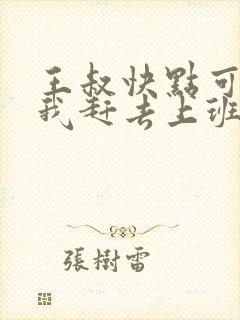 王叔快點可
我赶去上班
張樹雷